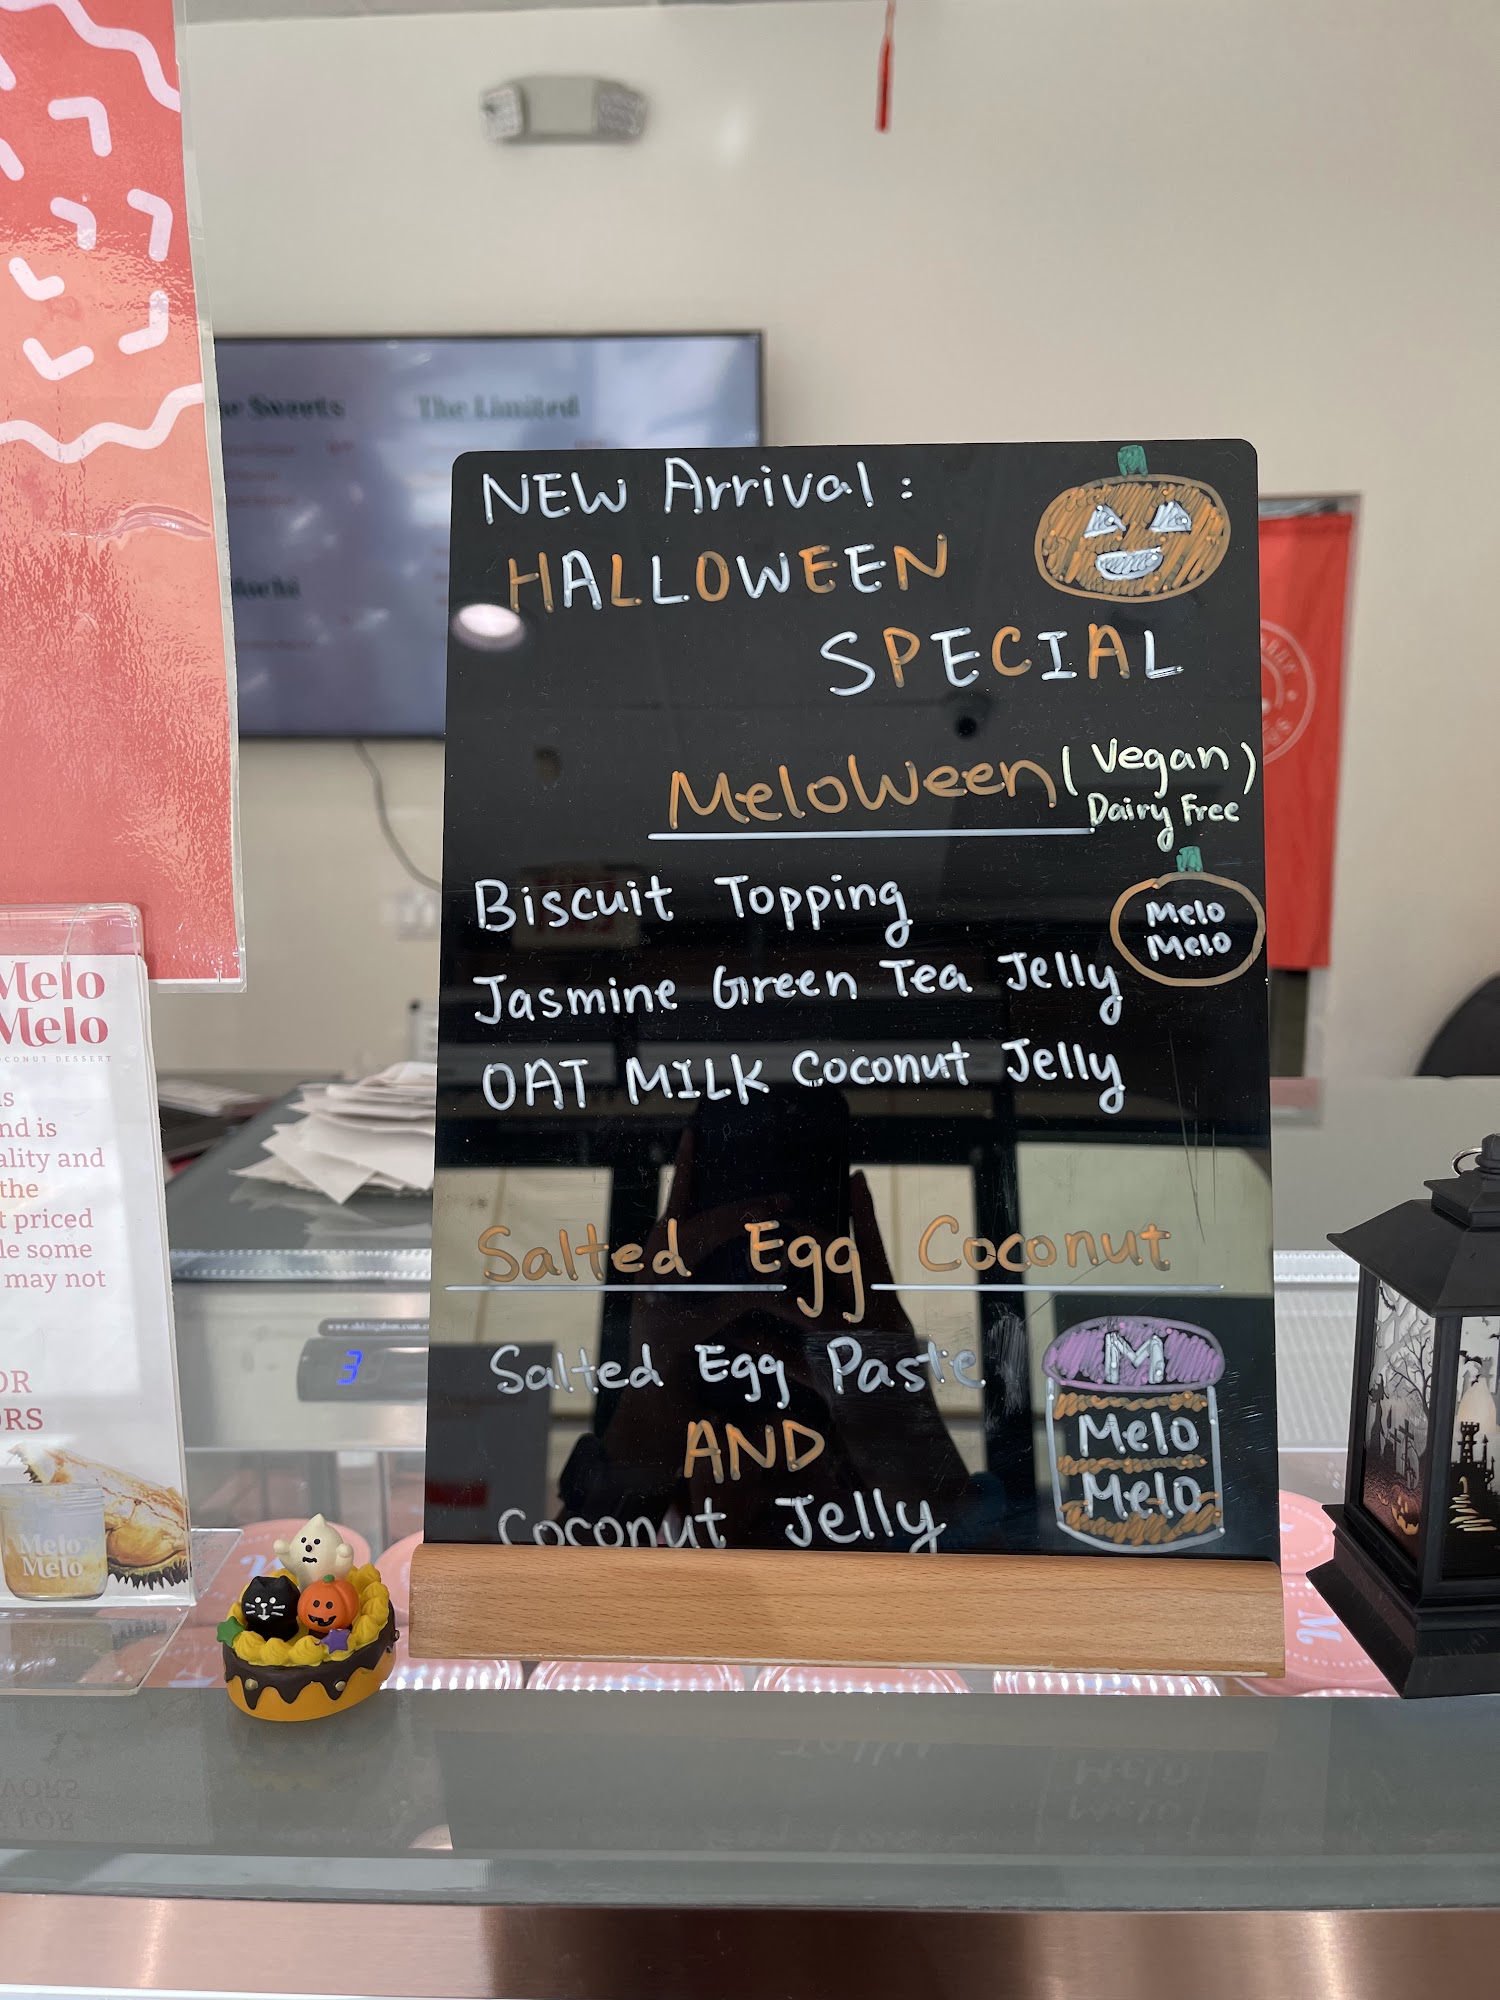 NEW Arrival:
HALLOWEEN
SPECIAL
MeloWeen (Vegan)
Dairy Free
Biscuit Topping
Melo
Melo
Jasmine Green Tea Jelly
OAT MILK Coconut Jelly
Salted Egg Coconut
Salted Egg Paste
AND
Coconut Jelly
M
Melo
Melo
Sweets
The Limited
Melo
Melo
COCONUT DESSERT
nd is
ality and
the
t priced
le some
may not
OR
ORS
Melo
Melo
3
M